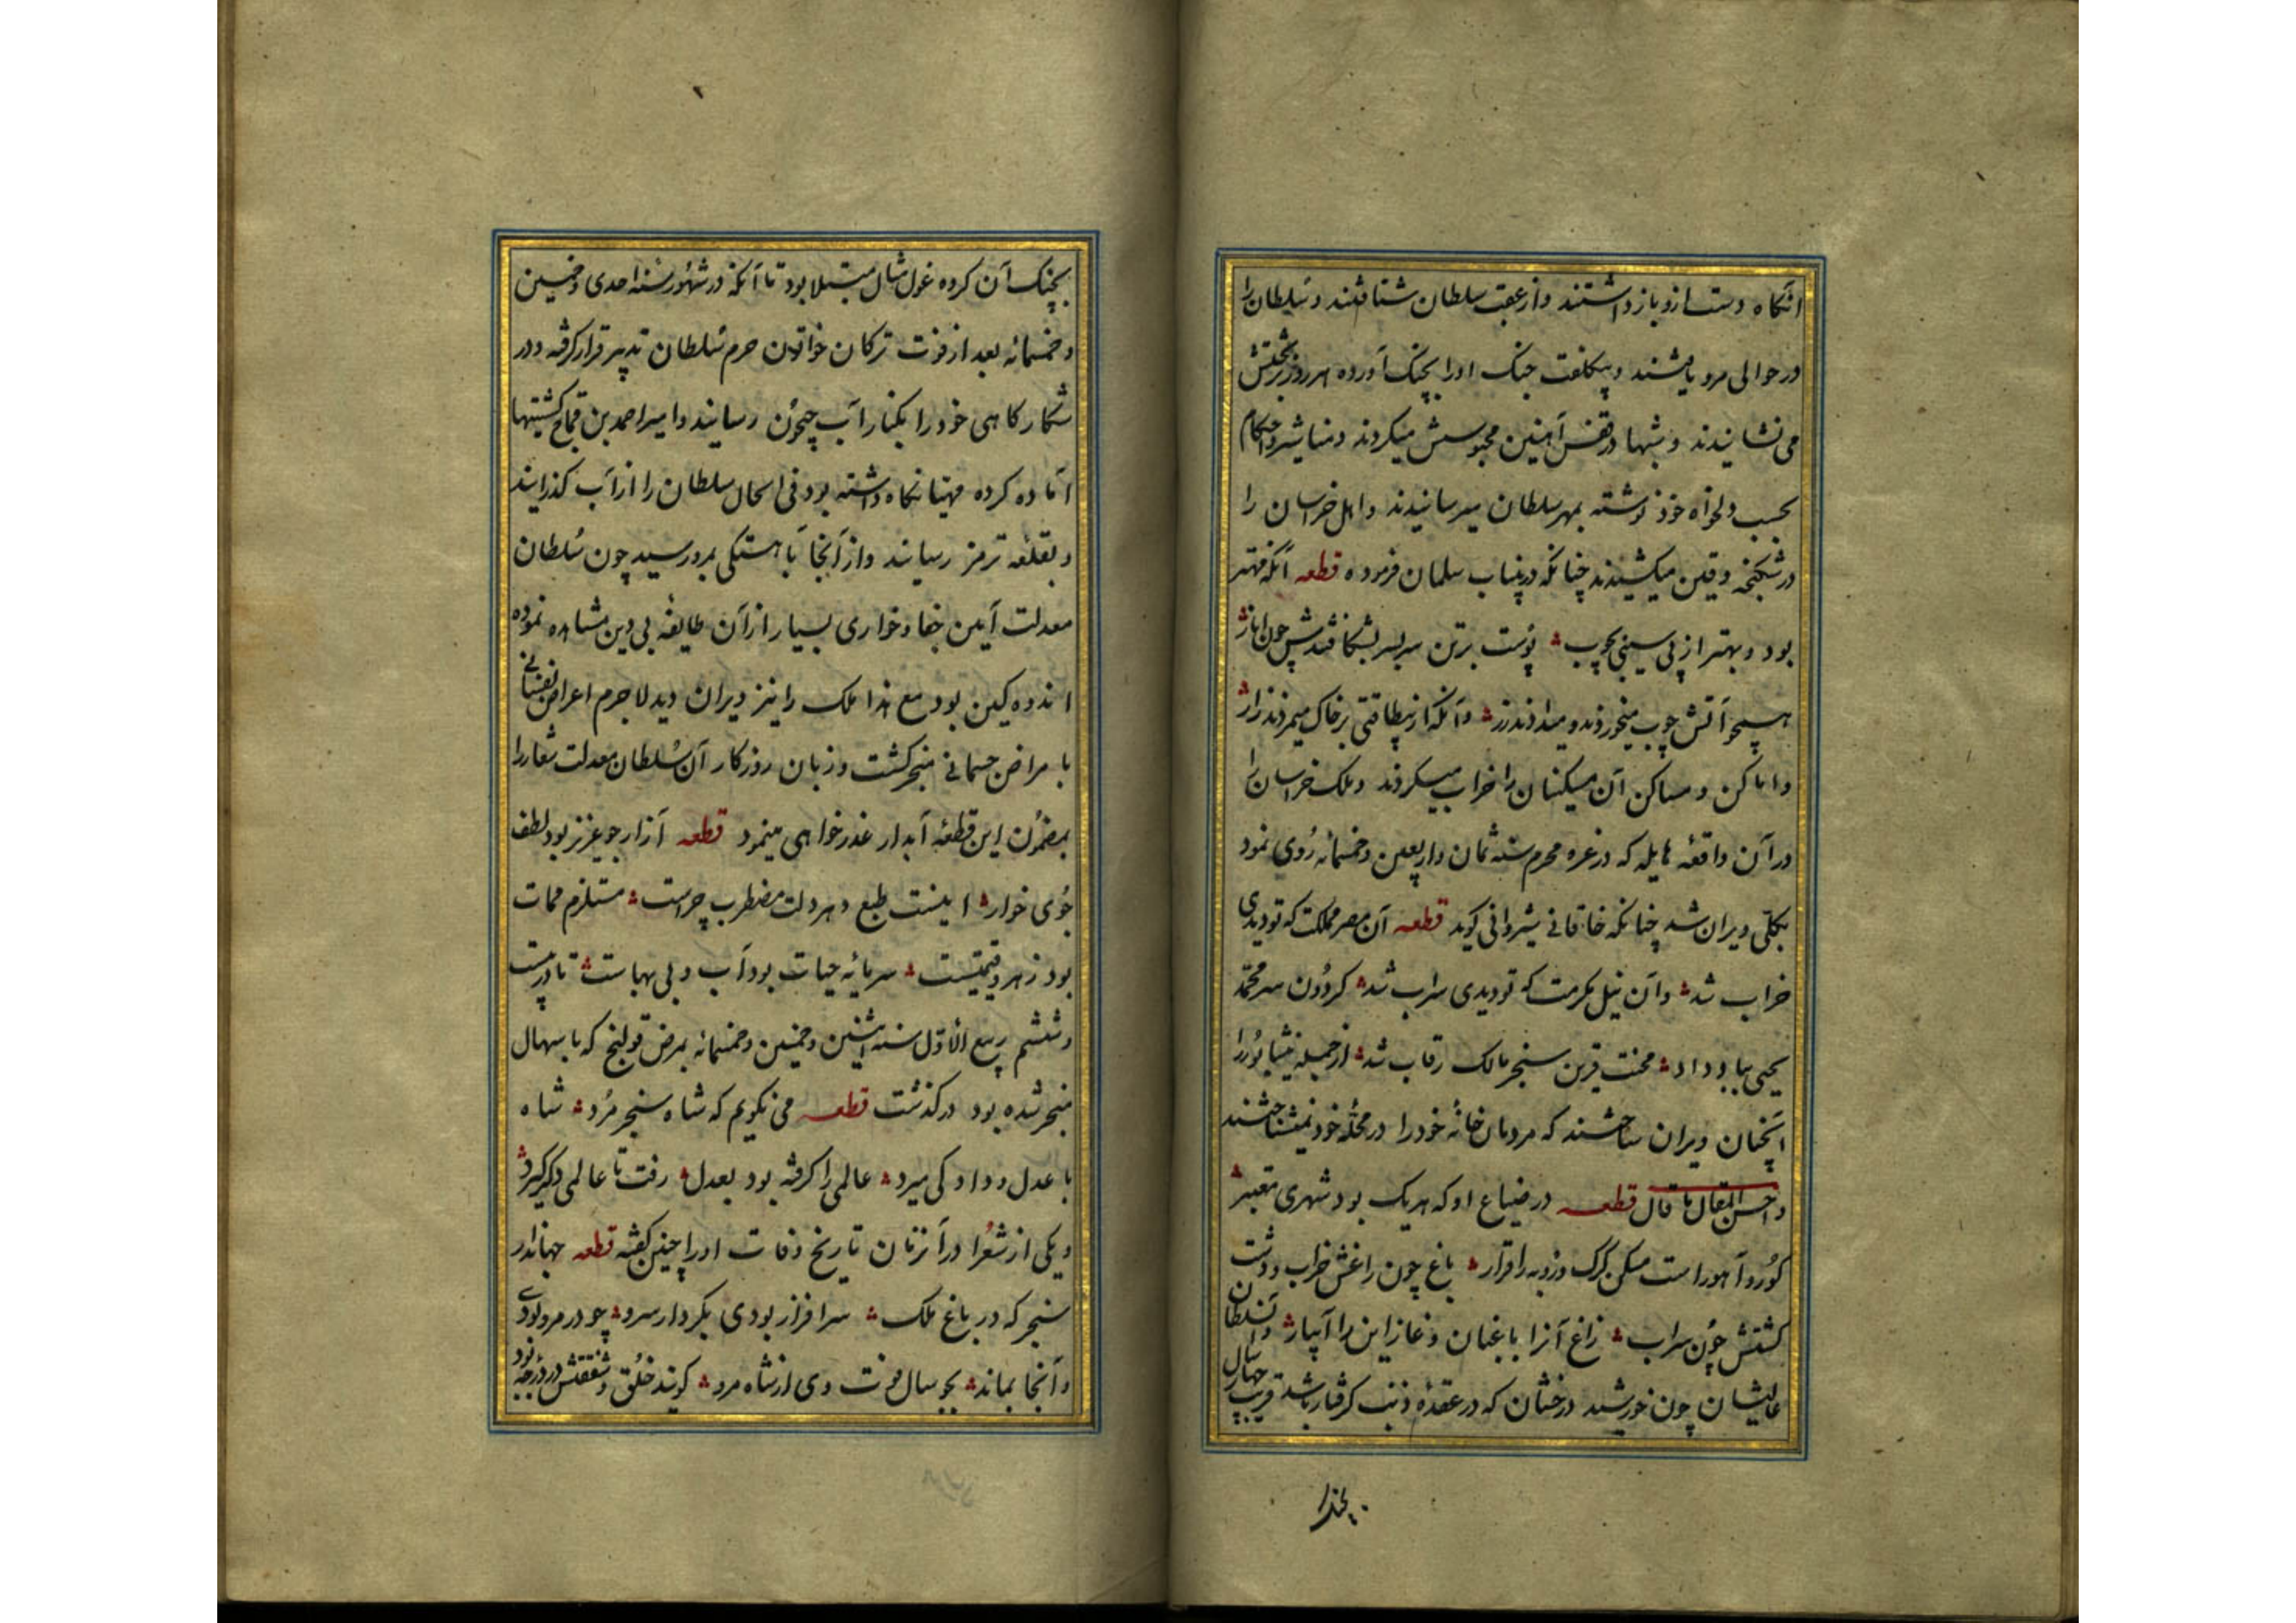 انکاه دست ازو باز داشتند و از عقب سلطان شتافتند و سلطان را
در حوالی مرو یافتند و بیکلفت جنک او را بچنک آورده هر روز بر تختش
می نشانیدند و شبها در قفس آهنین محبوسش میکردند و مناشیر و احکام
بحسب دلخواه خود نوشته بمهر سلطان میرسانیدند و اهل خراسان را
در شکنجه و قین میکشیدند چنانکه درینباب سلمان فرموده قطعه آنکه مهتر
بود و بهتر از پی سیخ و چوب پوست بر تن سر بسر بشکافتندش چون انار
همچو آتش چوب میخوردند و میدادند زر وانکه از بیطاقتی بر خاک میمردند زار
و اماکن و مساکن آن مسکینان را خراب میکردند و ملک خراسان را
در آن واقعه هایله که در غره محرم سنه ثمان و اربعین و خمسمائه روی نمود
بکلی ویران شد چنانکه خاقانی شیروانی کوید قطعه آن مصر مملکت که تو دیدی
خراب شد وآن نیل مکرمت که تو دیدی سراب شد کردون سر محمد
یحیی بباد داد محنت قرین سنجر مالک رقاب شد از جمله نیشابور را
آنچنان ویران ساختند که مردمان خانهٔ خود را در محلهٔ خود نمیشناختند
و احسن المقال ما قال قطعه در ضیاع او که هر یک بود شهری معتبر
کور و آهو راست مسکن کرک و روبه را قرار باغ چون راغش خراب و دشت
کشتش چون سراب زاغ آنرا باغبان و غاز این را آبیار و سلطان
عالیشان چون خورشید درخشان که در عقدهٔ ذنب کرفتار باشد قریب چهار سال
بچنک آن کروه غول مثال مبتلا بود تا آنکه در شهور سنه احدی و خمسین
و خمسمائه بعد از فوت ترکان خواتون حرم سلطان تدبیر قرار کرفته و در
شکارکاهی خود را بکنار آب جیحون رسانید و امیر احمد بن قماج کشتیها
آماده کرده مهیا نکاه داشته بود فی الحال سلطان را از آب کذرانید
و بقلعه ترمز رسانید و از آنجا باهستکی بمرو رسید چون سلطان
معدلت آیین جفا و خواری بسیار از آن طایفه بی دین مشاهده نموده
اندوهکین بود مع هذا ملک را نیز ویران دید لا جرم اعراض نفسانی
بامراض جسمانی منجر کشت و زبان روزکار آن سلطان معدلت شعار را
بمضمون این قطعهٔ آبدار عذر خواهی مینمود قطعه آزار جو عزیز بود لطف
جوی خوار اینست طبع دهر دلت مضطرب چراست مستلزم ممات
بود زهر و قیمتیست سرمایه حیات بود آب و بی بهاست تا در بیست
و ششم ربیع الاول سنه اثنین و خمسین و خمسمائه بمرض قولنج که باسهال
منجر شده بود درکذشت قطعه می نکویم که شاه سنجر مرد شاه
با عدل و داد کی میرد عالمی را کرفته بود بعدل رفت تا عالمی دکر کیرد
و یکی از شعرا در آنزمان تاریخ وفات او را چنین کفته قطعه جهاندار
سنجر که در باغ ملک سرافراز بودی بکردار سرو چو در مرو بودی
و آنجا بماند بجو سال فوت وی از شاه مرو کویند خلق و شفقتش در درجه بود
بچنک